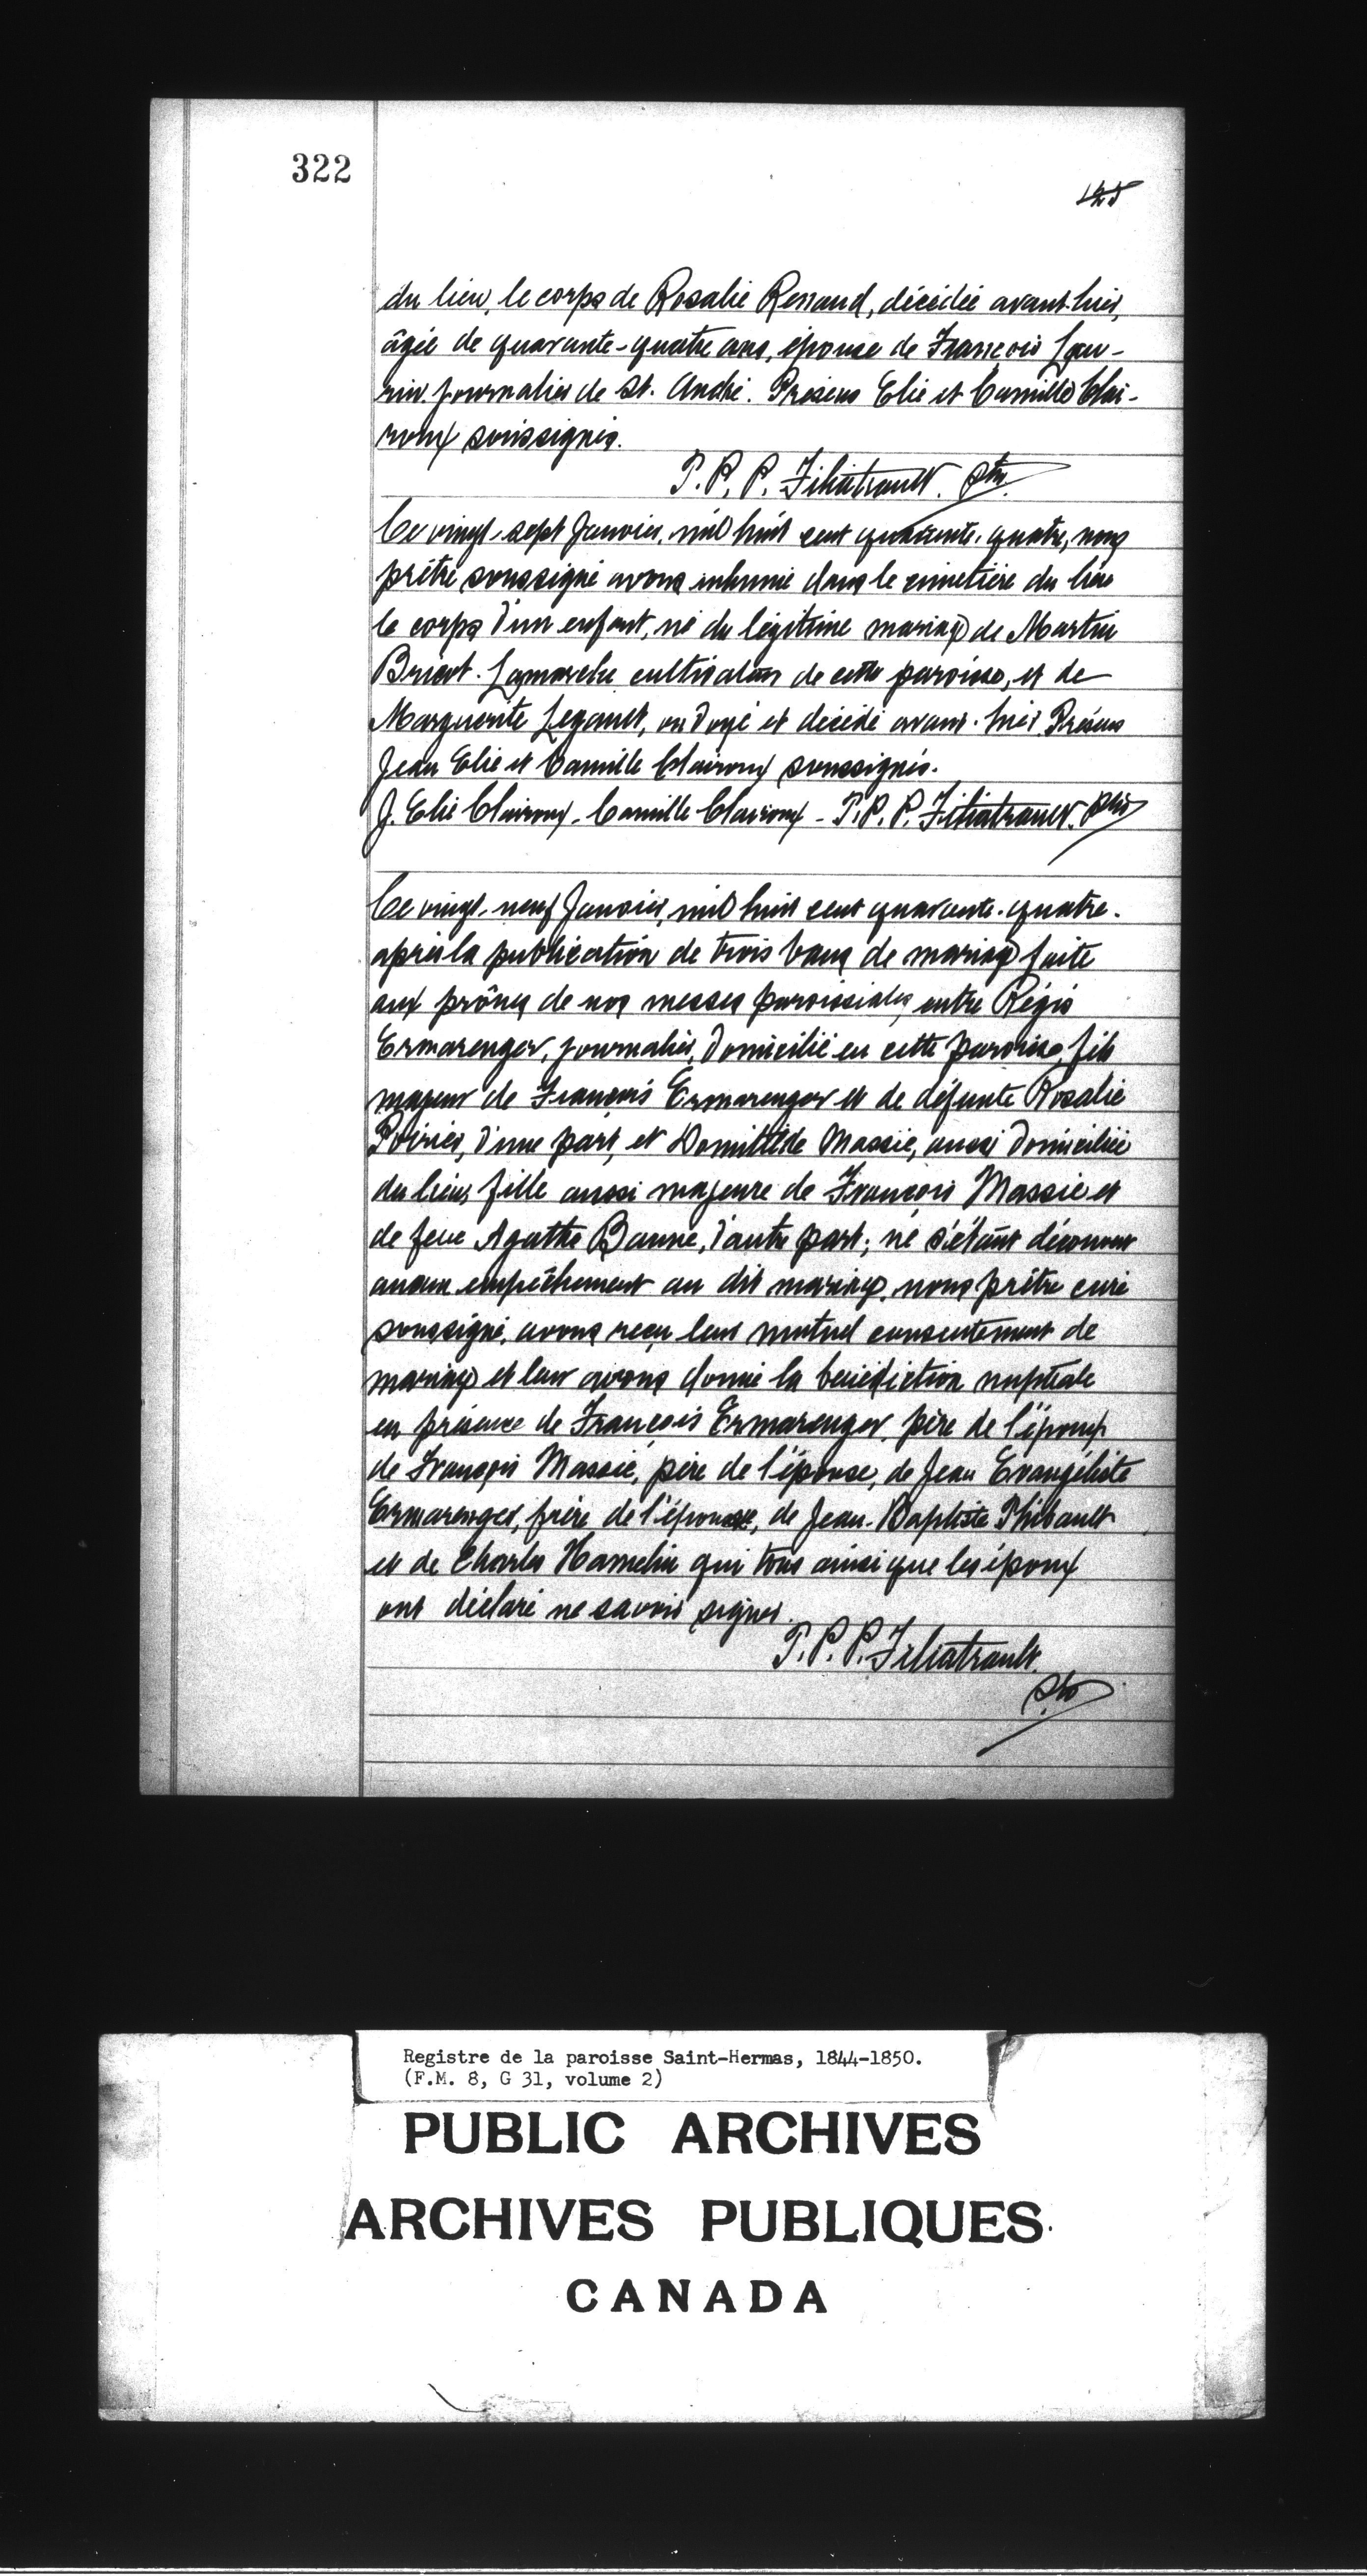 322
du lieu, le corps de Rosalie Renaud, décédée avant-hier,
âgée de quarante-quatre ans, épouse de François Lau-
rin journalier de St. André. Présens Elie et Camille Clai-
roux soussignés.
T. P. P. Filiatrault. ptre.
Ce vingt-sept Janvier, mil huit cent quarante-quatre, nous
prêtre soussigné avons inhumé dans le cimetière du lieu
le corps d'un enfant, né du légitime mariage de Martin
Brient-Lamarche cultivateur de cette paroisse, et de
Marguerite Legault, ondoyé et décédé avant-hier. Présens
Jean Elie et Camille Clairoux soussignés.
J. Elie Clairoux - Camille Clairoux - T. P. P. Filiatrault. ptre
Ce vingt-neuf Janvier, mil huit cent quarante-quatre.
après la publication de trois bans de mariage faite
aux prônes de nos messes paroissiales, entre Régis
Ermarenger, journalier, domicilié en cette paroisse, fils
majeur de François Ermarenger et de défunte Rosalie
Poirier, d'une part, et Domitilde Massie, aussi domiciliée
du lieu, fille aussi majeure de François Massie et
de feue Agathe Banne, d'autre part; ne s'étant découvert
aucun empêchement au dit mariage, nous prêtre curé
soussigné, avons reçu leur mutuel consentement de
mariage et leur avons donné la bénédiction nuptiale
en présence de François Ermarenger, père de l'époux
de François Massie, père de l'épouse, de Jean Evangéliste
Ermarenger, frère de l'épouse, de Jean-Baptiste Thibault
et de Charles Hamelin qui tous ainsi que les époux
ont déclaré ne savoir signer.
T. P. P. Filiatrault.
ptre
Registre de la paroisse Saint-Hermas, 1844-1850.
(F.M. 8, G 31, volume 2)
PUBLIC ARCHIVES
ARCHIVES PUBLIQUES
CANADA